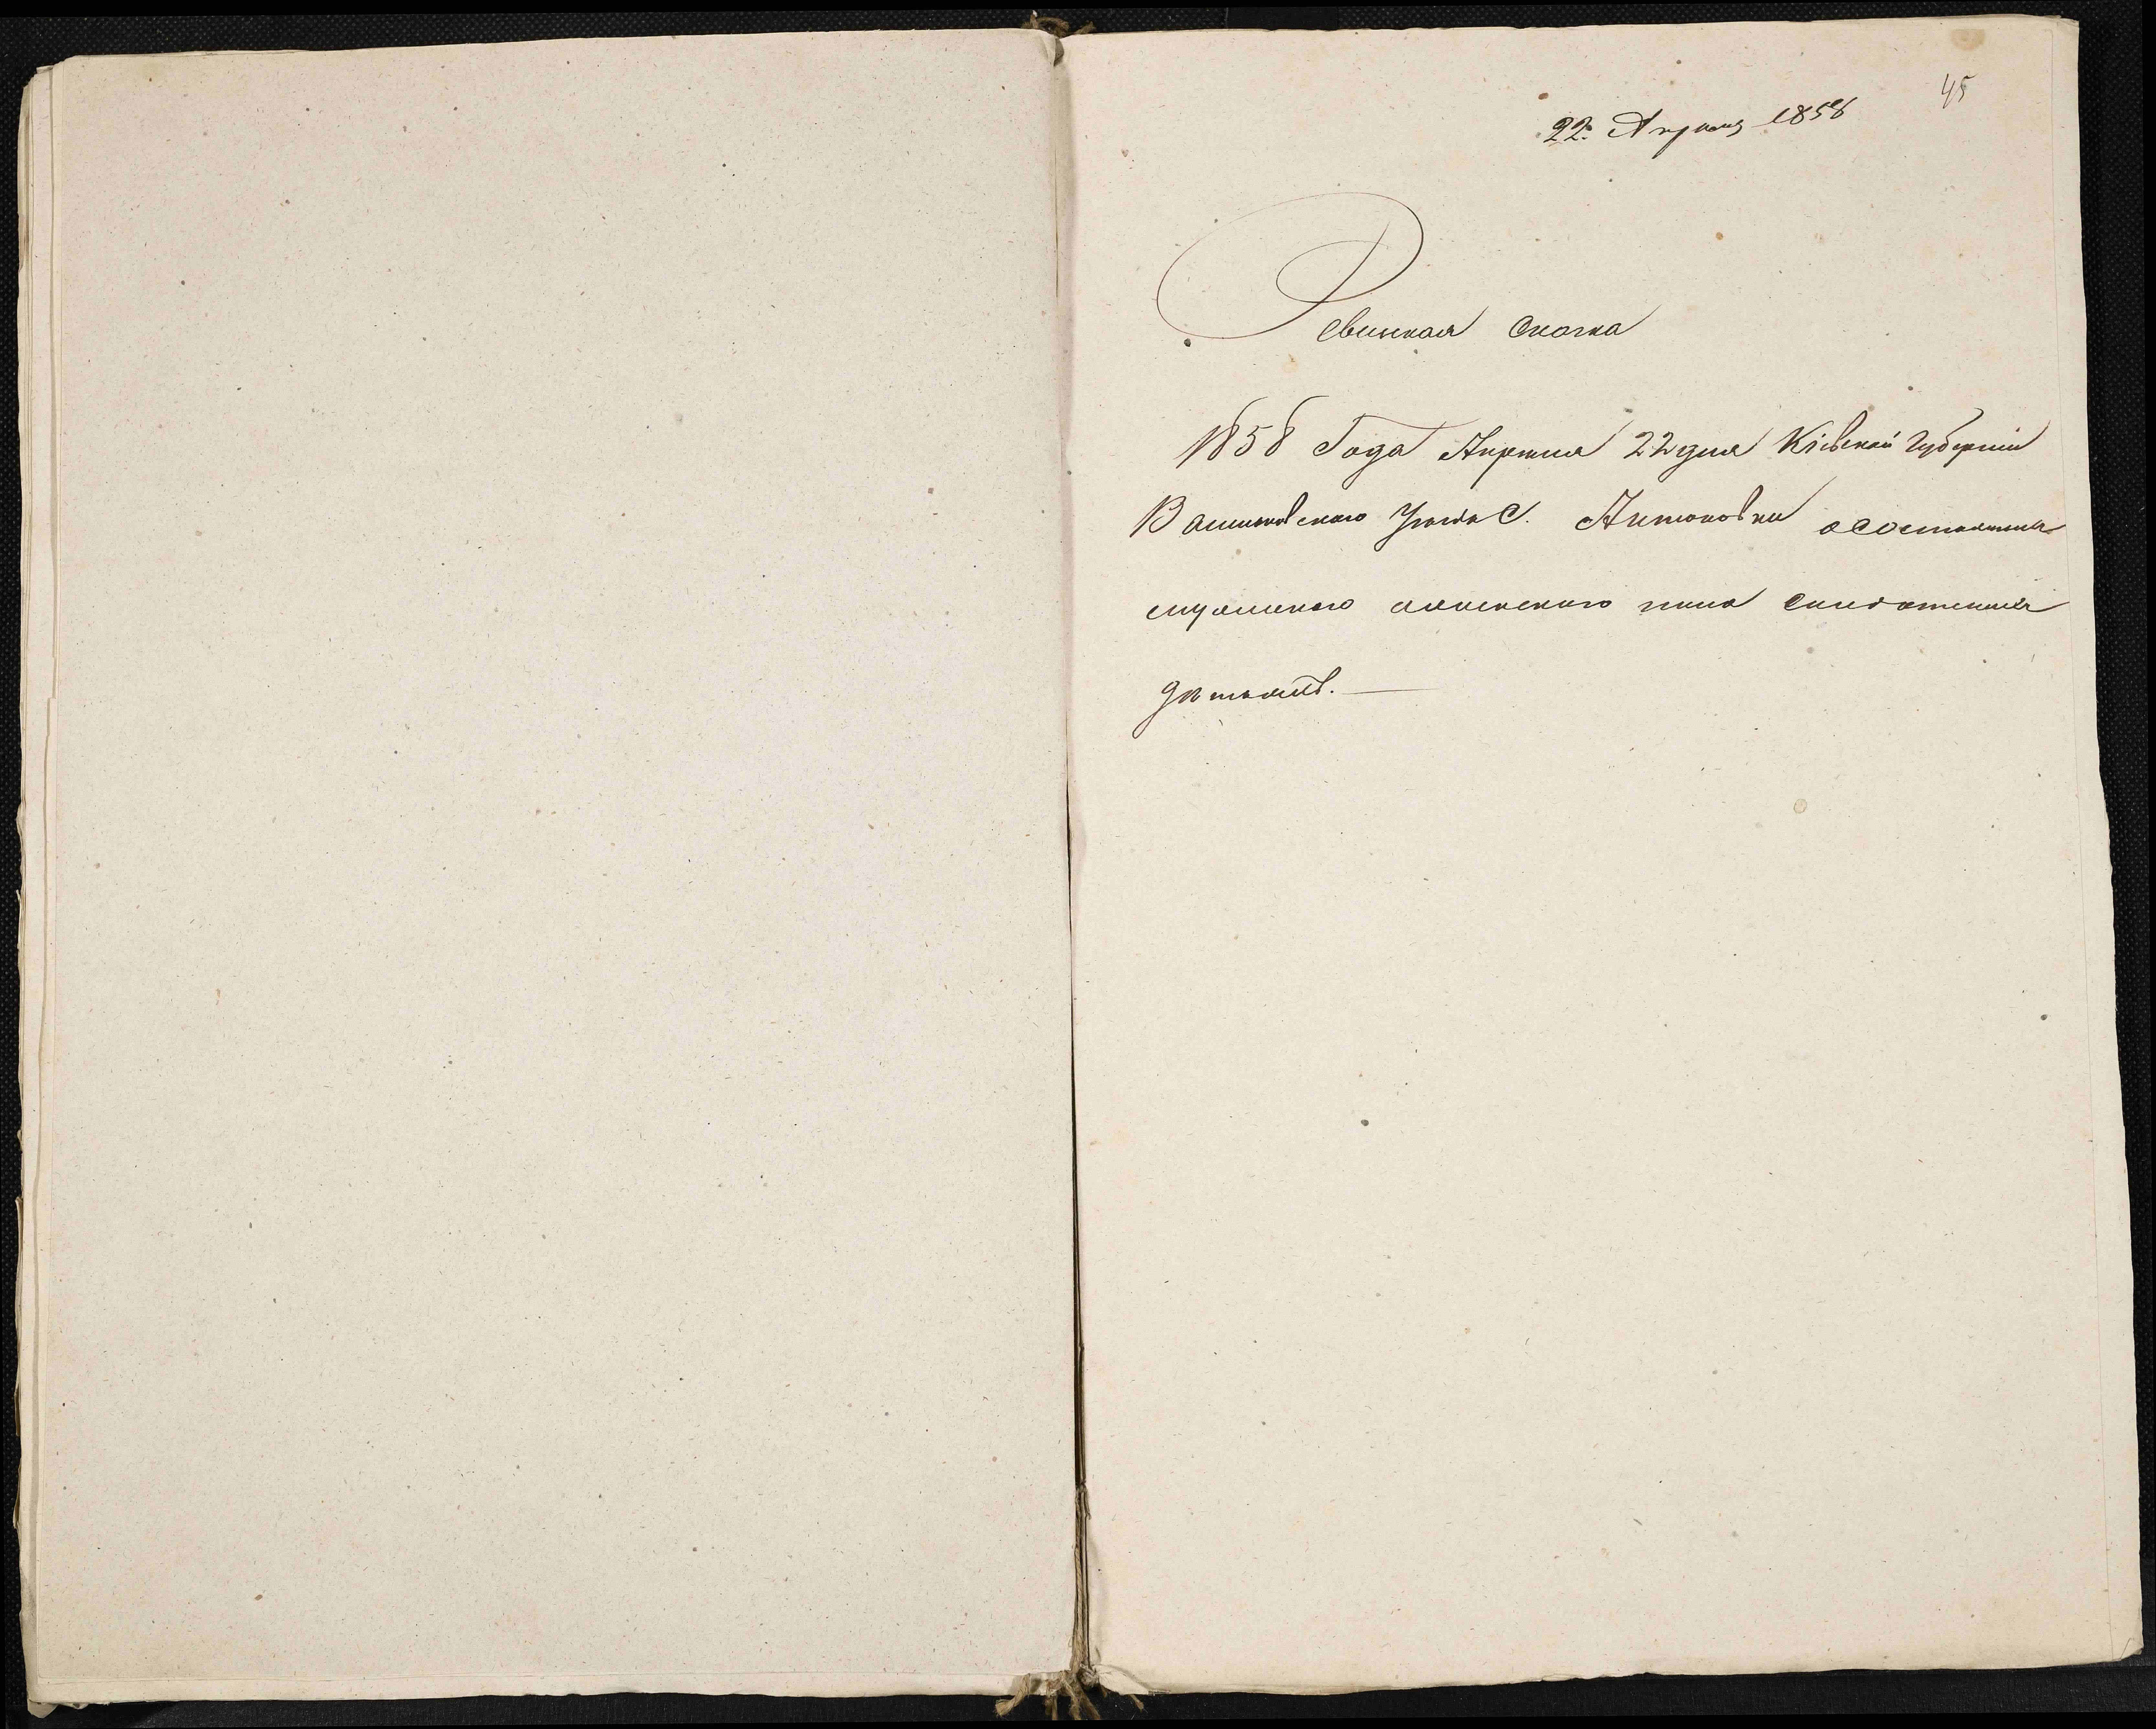 45
22го Апреля 1858
Ревизкая Сказка
1858 Года Апреля 22 дня Кіевской Губерніи
Васильковскаго Уезда С. Антоновки о состоящихъ
мужескаго и женскаго пола